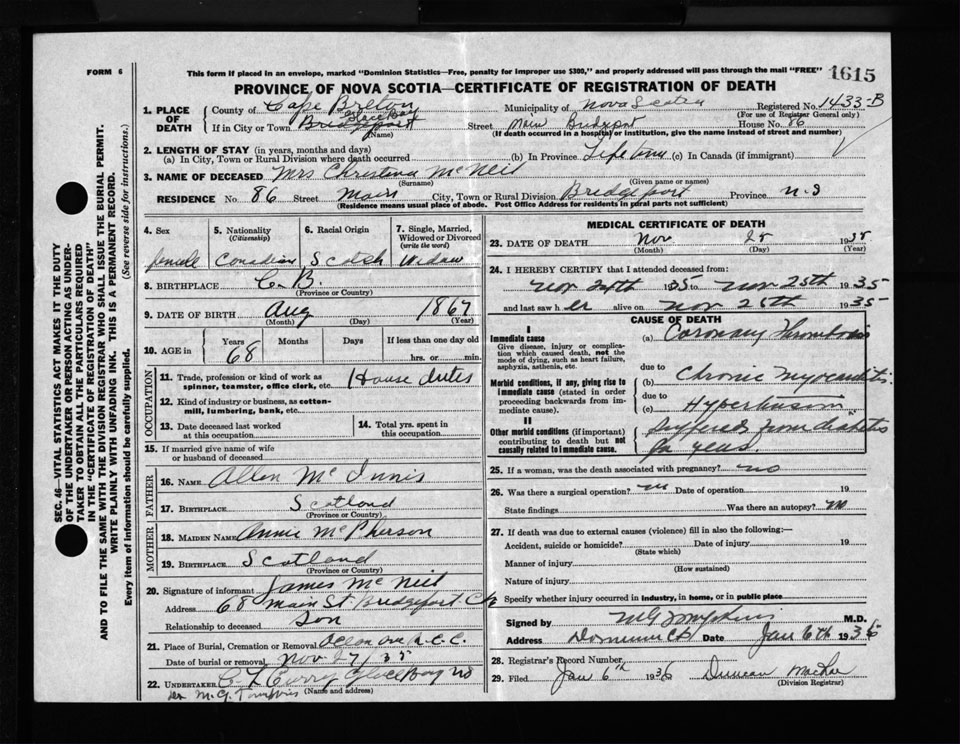 FORM 6
This form if placed in an envelope, marked "Dominion Statistics—Free, penalty for improper use $300," and properly addressed will pass through the mail "FREE"
1615
PROVINCE OF NOVA SCOTIA—CERTIFICATE OF REGISTRATION OF DEATH
1. PLACE OF DEATH
County of Cape Breton
Municipality of Nova Scotia
Registered No. 1433-B
(For use of Registrar General only)
If in City or Town Bridgeport Glace Bay
(Name)
Street Main Bridgeport House No. 86
(If death occurred in a hospital or institution, give the name instead of street and number)
2. LENGTH OF STAY (in years, months and days)
(a) In City, Town or Rural Division where death occurred (b) In Province Life time (c) In Canada (if immigrant)
3. NAME OF DECEASED Mrs Christina McNeil
(Surname) (Given name or names)
RESIDENCE No. 86 Street Main City, Town or Rural Division Bridgeport Province N.S
(Residence means usual place of abode. Post Office Address for residents in rural parts not sufficient)
4. Sex
female
5. Nationality
(Citizenship)
Canadian
6. Racial Origin
Scotch
7. Single, Married, Widowed or Divorced
(write the word)
Widow
8. BIRTHPLACE C.B.
(Province or Country)
9. DATE OF BIRTH Aug 1867
(Month) (Day) (Year)
10. AGE in
Years Months Days If less than one day old
68
hrs. or min.
OCCUPATION
11. Trade, profession or kind of work as spinner, teamster, office clerk, etc. House duties
12. Kind of industry or business, as cotton-mill, lumbering, bank, etc.
13. Date deceased last worked at this occupation
14. Total yrs. spent in this occupation
15. If married give name of wife or husband of deceased
FATHER
16. NAME Allan McInnis
17. BIRTHPLACE Scotland
(Province or Country)
MOTHER
18. MAIDEN NAME Annie McPherson
19. BIRTHPLACE Scotland
(Province or Country)
20. Signature of informant James McNeil
Address 68 Main St. Bridgeport C.B.
Relationship to deceased Son
21. Place of Burial, Cremation or Removal Ocean Ave R.C.C.
Date of burial or removal Nov 27/35
22. UNDERTAKER Curry Glace Bay NS
(Name and address)
M.G. Tompkins
MEDICAL CERTIFICATE OF DEATH
23. DATE OF DEATH Nov 25 1935
(Month) (Day) (Year)
24. I HEREBY CERTIFY that I attended deceased from:
Nov 24th 1935 to Nov 25th 1935
and last saw her alive on Nov 25th 1935
CAUSE OF DEATH
I
Immediate cause
Give disease, injury or complication which caused death, not the mode of dying, such as heart failure, asphyxia, asthenia, etc.
(a) Coronary Thrombosis
due to
Morbid conditions, if any, giving rise to immediate cause (stated in order proceeding backwards from immediate cause).
(b) Chronic myocarditis
due to
(c) Hypertension
II
Other morbid conditions (if important) contributing to death but not causally related to immediate cause.
Suffered from diabetis
for years.
25. If a woman, was the death associated with pregnancy? no
26. Was there a surgical operation? no Date of operation 19
State findings Was there an autopsy? no
27. If death was due to external causes (violence) fill in also the following:—
Accident, suicide or homicide? Date of injury 19
(State which)
Manner of injury
(How sustained)
Nature of injury
Specify whether injury occurred in industry, in home, or in public place
Signed by M G Tompkins M.D.
Address Dominion CB Date Jan 6th 1936
28. Registrar's Record Number
29. Filed Jan 6th 1936 Duncan MacRae
(Division Registrar)
SEC. 46—VITAL STATISTICS ACT MAKES IT THE DUTY
OF THE UNDERTAKER OR PERSON ACTING AS UNDER-
TAKER TO OBTAIN ALL THE PARTICULARS REQUIRED
IN THE "CERTIFICATE OF DEATH"
AND TO FILE THE SAME WITH THE DIVISION REGISTRAR WHO SHALL ISSUE THE BURIAL PERMIT.
WRITE PLAINLY WITH UNFADING INK. THIS IS A PERMANENT RECORD.
Every item of information should be carefully supplied. (See reverse side for instructions.)